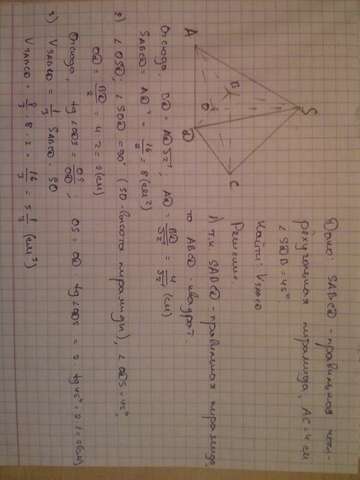 Дано: SABCD - правильная четы-
рёхугольная пирамида, AC = 4 см
∠SDB = 45°
Найти: V SABCD
Решение:
1) т.к. SABCD - правильная пирамида,
то ABCD - квадрат
A
B
O
S
D
C
Отсюда BD = AD√2, AD = BD/√2 = 4/√2 (см)
SABCD = AD² = 16/2 = 8 (см²)
2) ∠OSD; ∠SOD = 90° (SO - высота пирамиды), ∠ODS = 45°
OD = BD/2 = 4:2 = 2 (см)
Отсюда, tg∠ODS = OS/OD; OS = OD · tg∠ODS = 2 · tg45° = 2·1 = 2 (см)
3) V SABCD = 1/3 SABCD · SO
V SABCD = 1/3 · 8 · 2 = 16/3 = 5 1/3 (см³)